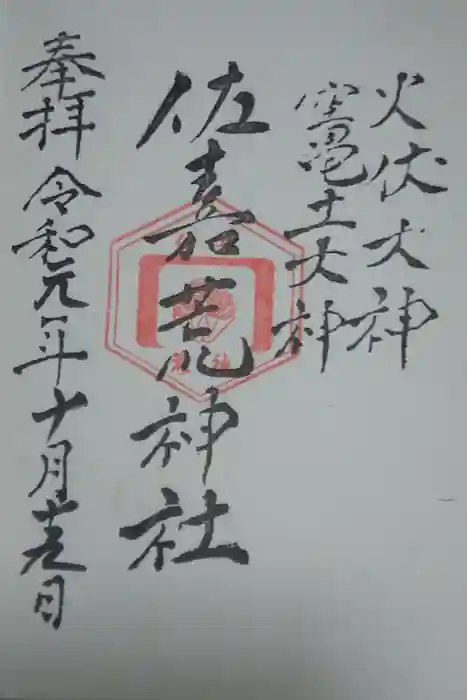 火伏大神
竈土大神
佐嘉荒神社
奉拝 令和元年十月 日